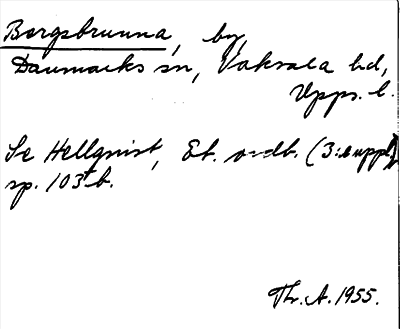 Bergsbrunna, by,
Danmarks sn, Vaksala hd,
Upps. l.
Se Hellquist, Et. ordb. (3:e uppl)
sp. 103 b.
Thr. A. 1955.